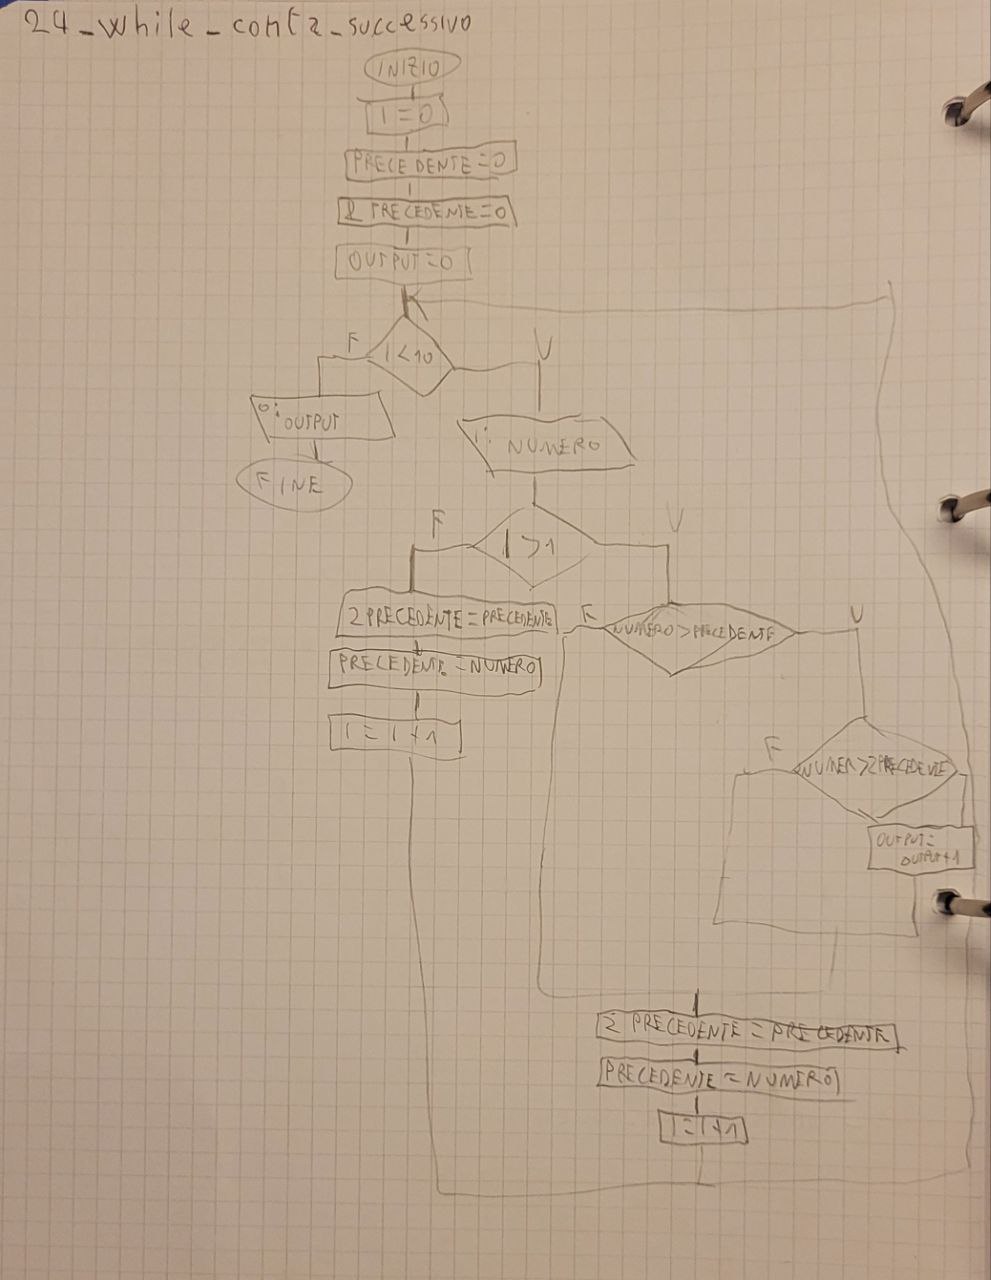 24_while_conta_successivo
INIZIO
I=0
PRECEDENTE=0
2 PRECEDENTE=0
OUTPUT=0
F
I<10
V
O: OUTPUT
I: NUMERO
FINE
F
I>1
V
2PRECEDENTE=PRECEDENTE
F
NUMERO>PRECEDENTE
V
PRECEDENTE=NUMERO
I=I+1
F
NUMER>2PRECEDENTE
OUTPUT=
OUTPUT+1
2 PRECEDENTE=PRECEDENTE
PRECEDENTE=NUMERO
I=I+1